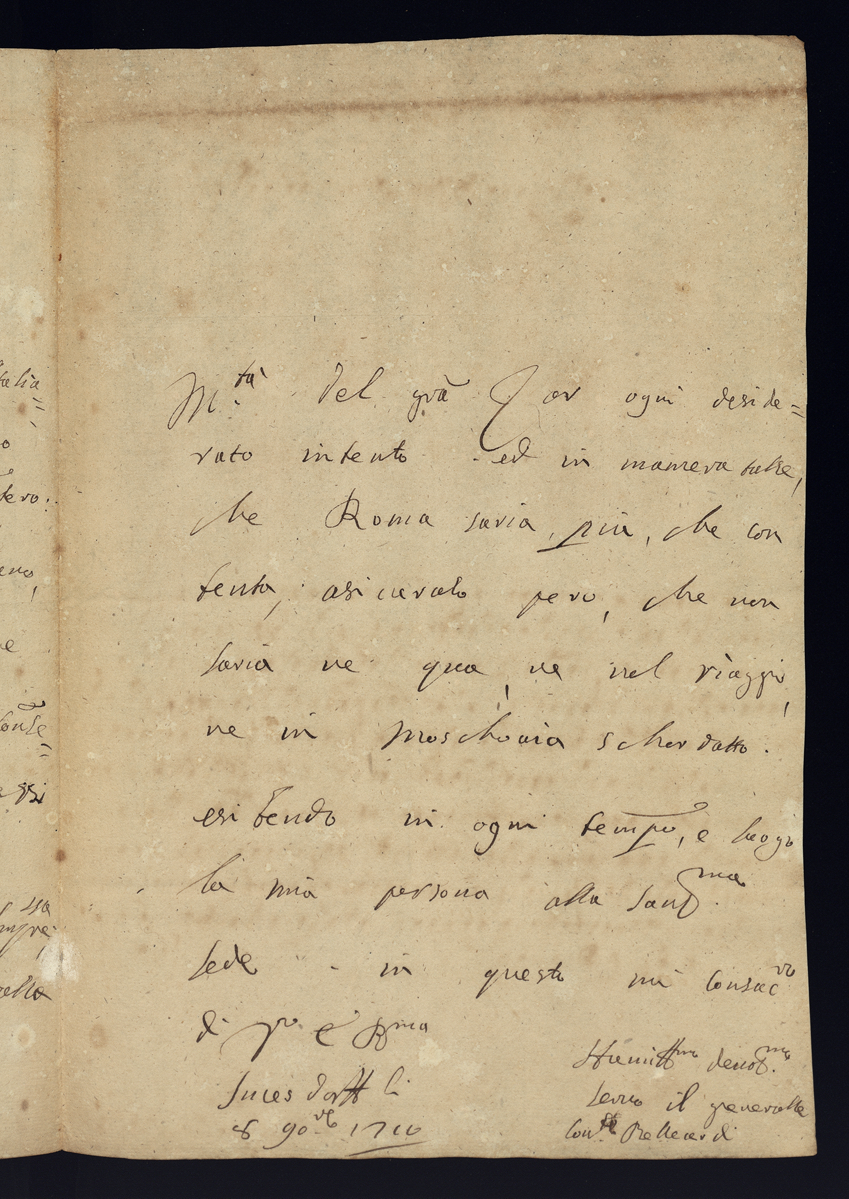 M.tà del grã Zar ogni deside=
rato intento ed in maniera talle,
che Roma saria, più, che con
tenta, asicurato però, che non
saria ne qua, ne nel viaggio,
ne in Moschovia schordatto.
esibendo in ogni tempo, e luogo
la mia persona alla Sant.ma
Sede - in questo mi consac.ro
di V.ra E R.ma
8 9b.re 1710
Humill.mo devot.mo
Servo il generalle
Con.te